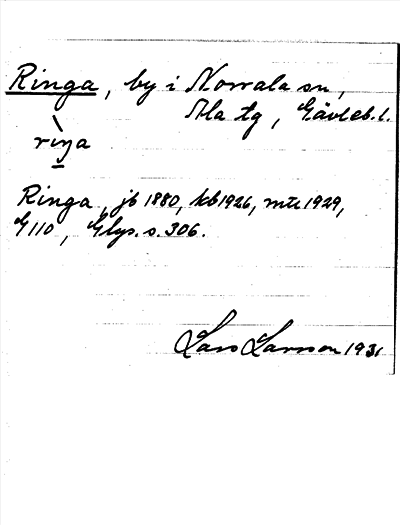 Ringa, by i Norrala sn,
Ala tg, Gävleb. l.
riŋa
Ringa, jb 1880, kb 1926, mtl. 1929,
G 110, Glys. s. 306.
Lars Larsson 1931